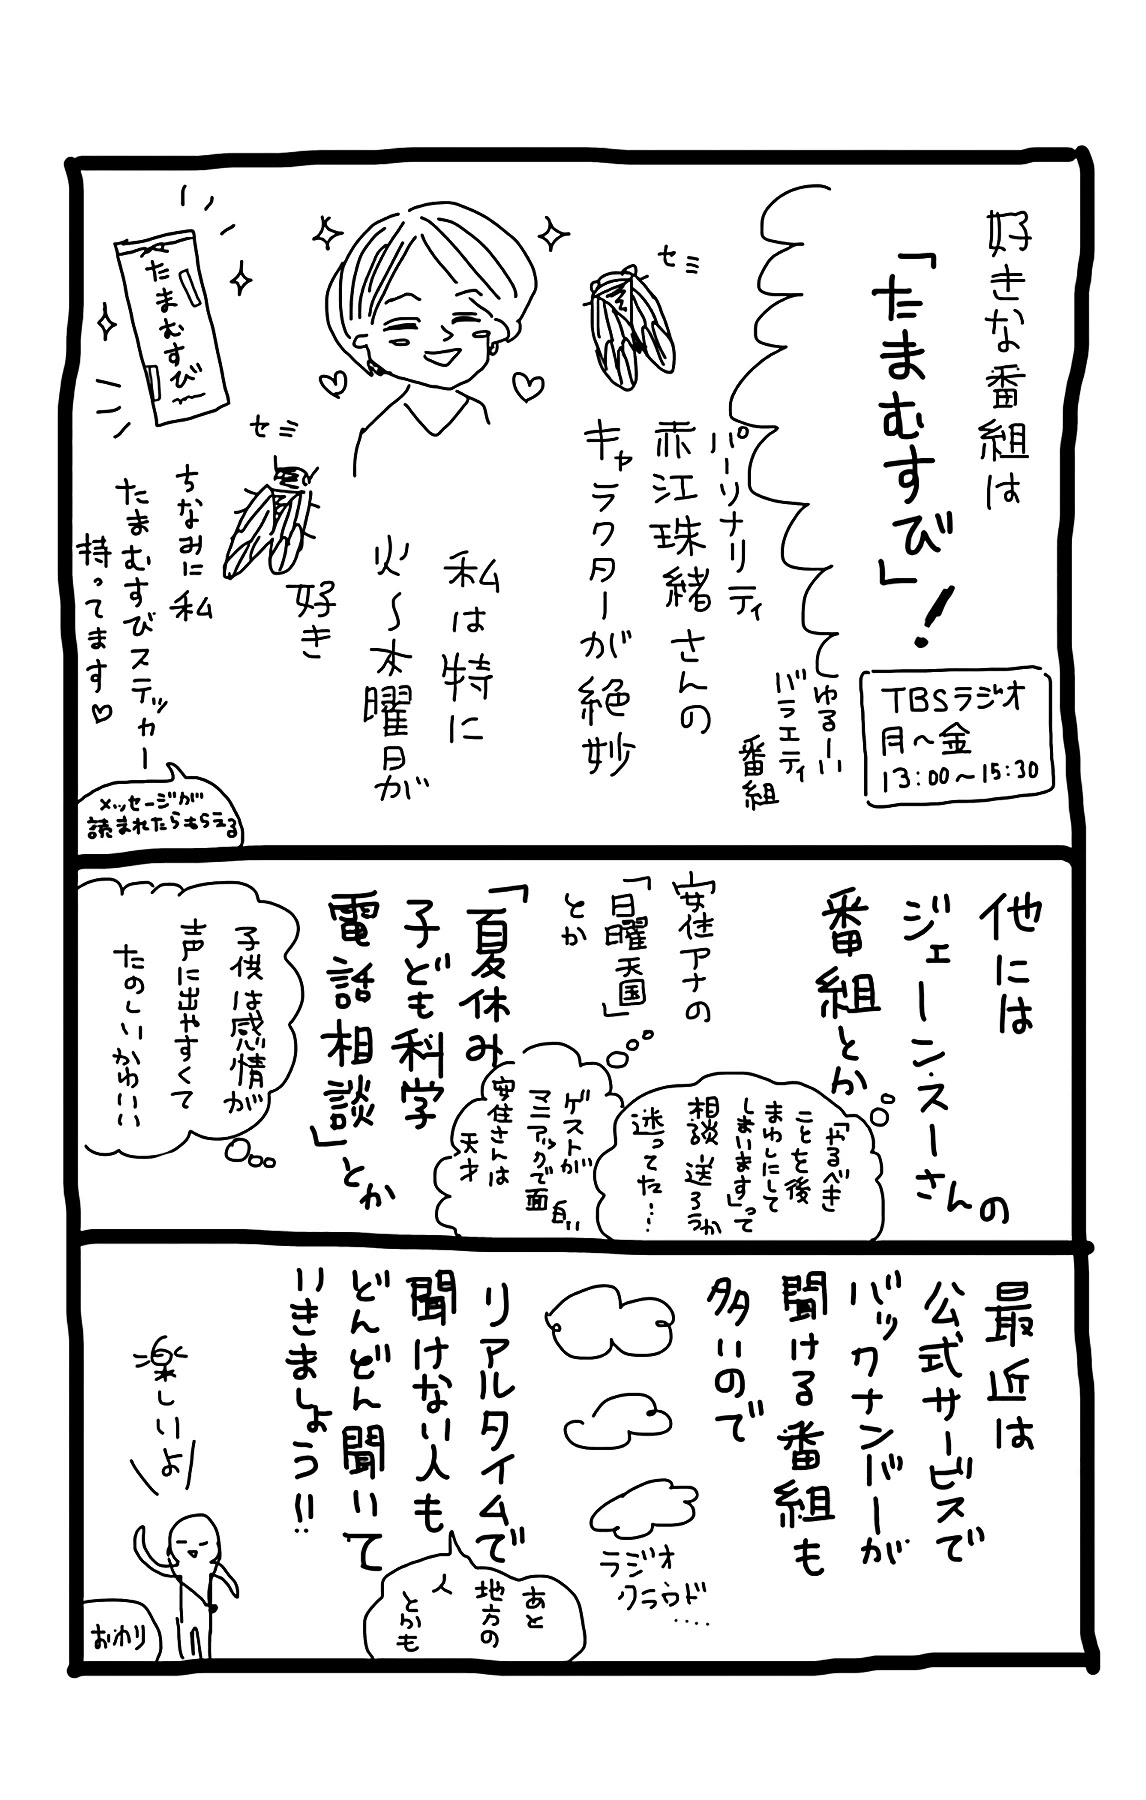 好きな番組は
「たまむすび」!
TBSラジオ
月～金
13:00～15:30
ゆるーい
バラエティ
番組
パーソナリティ
赤江珠緒さんの
キャラクターが絶妙
セミ
私は特に
火～木曜日が
好き
セミ
たまむすび
ちなみに私
たまむすびステッカー
持ってます♡
メッセージが
読まれたらもらえる
他には
ジェーン・スーさんの
番組とか
「やるべき
ことを後
まわしにして
しまいます」って
相談送ろうか
迷ってた…
安住アナの
「日曜天国」
とか
ゲストが
マニアックで
面白い
安住さんは
天才
「夏休み
子ども科学
電話相談」とか
子供は感情が
声に出やすくて
たのしいかわいい
最近は
公式サービスで
バックナンバーが
聞ける番組も
多いので
ラジオ
クラウド
....
リアルタイムで
聞けない人も
どんどん聞いて
いきましょう!!
あと
地方の
人
とかも
楽しいよ
おわり